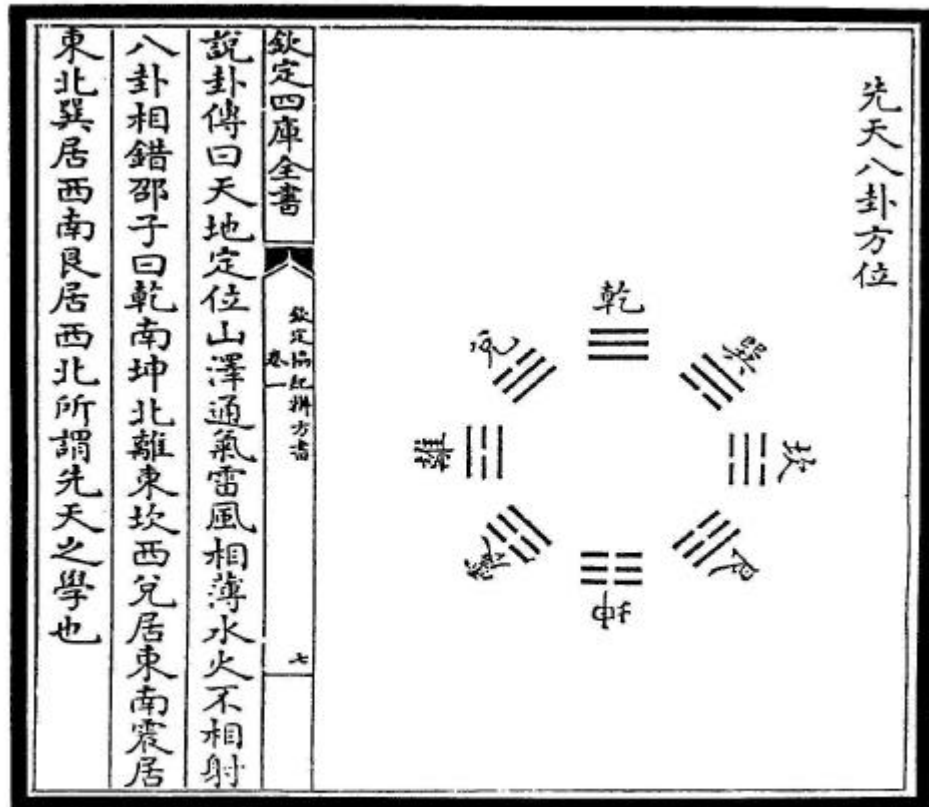 先天八卦方位
乾
兌
巽
離
坎
震
艮
坤
欽定四庫全書
欽定協紀辨方書
卷一
七
說卦傳曰天地定位山澤通氣雷風相薄水火不相射
八卦相錯邵子曰乾南坤北離東坎西兌居東南震居
東北巽居西南艮居西北所謂先天之學也